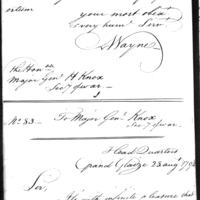 esteem
your most obdt
Very humb Servt
A Wayne
The Honble
Major Genl H Knox
Secy of War
No. 83. To Major Genl Knox
Secy of War
Head Quarters
Grand Glaize 28 augt 179
Sir,
It is with infinite pleasure that